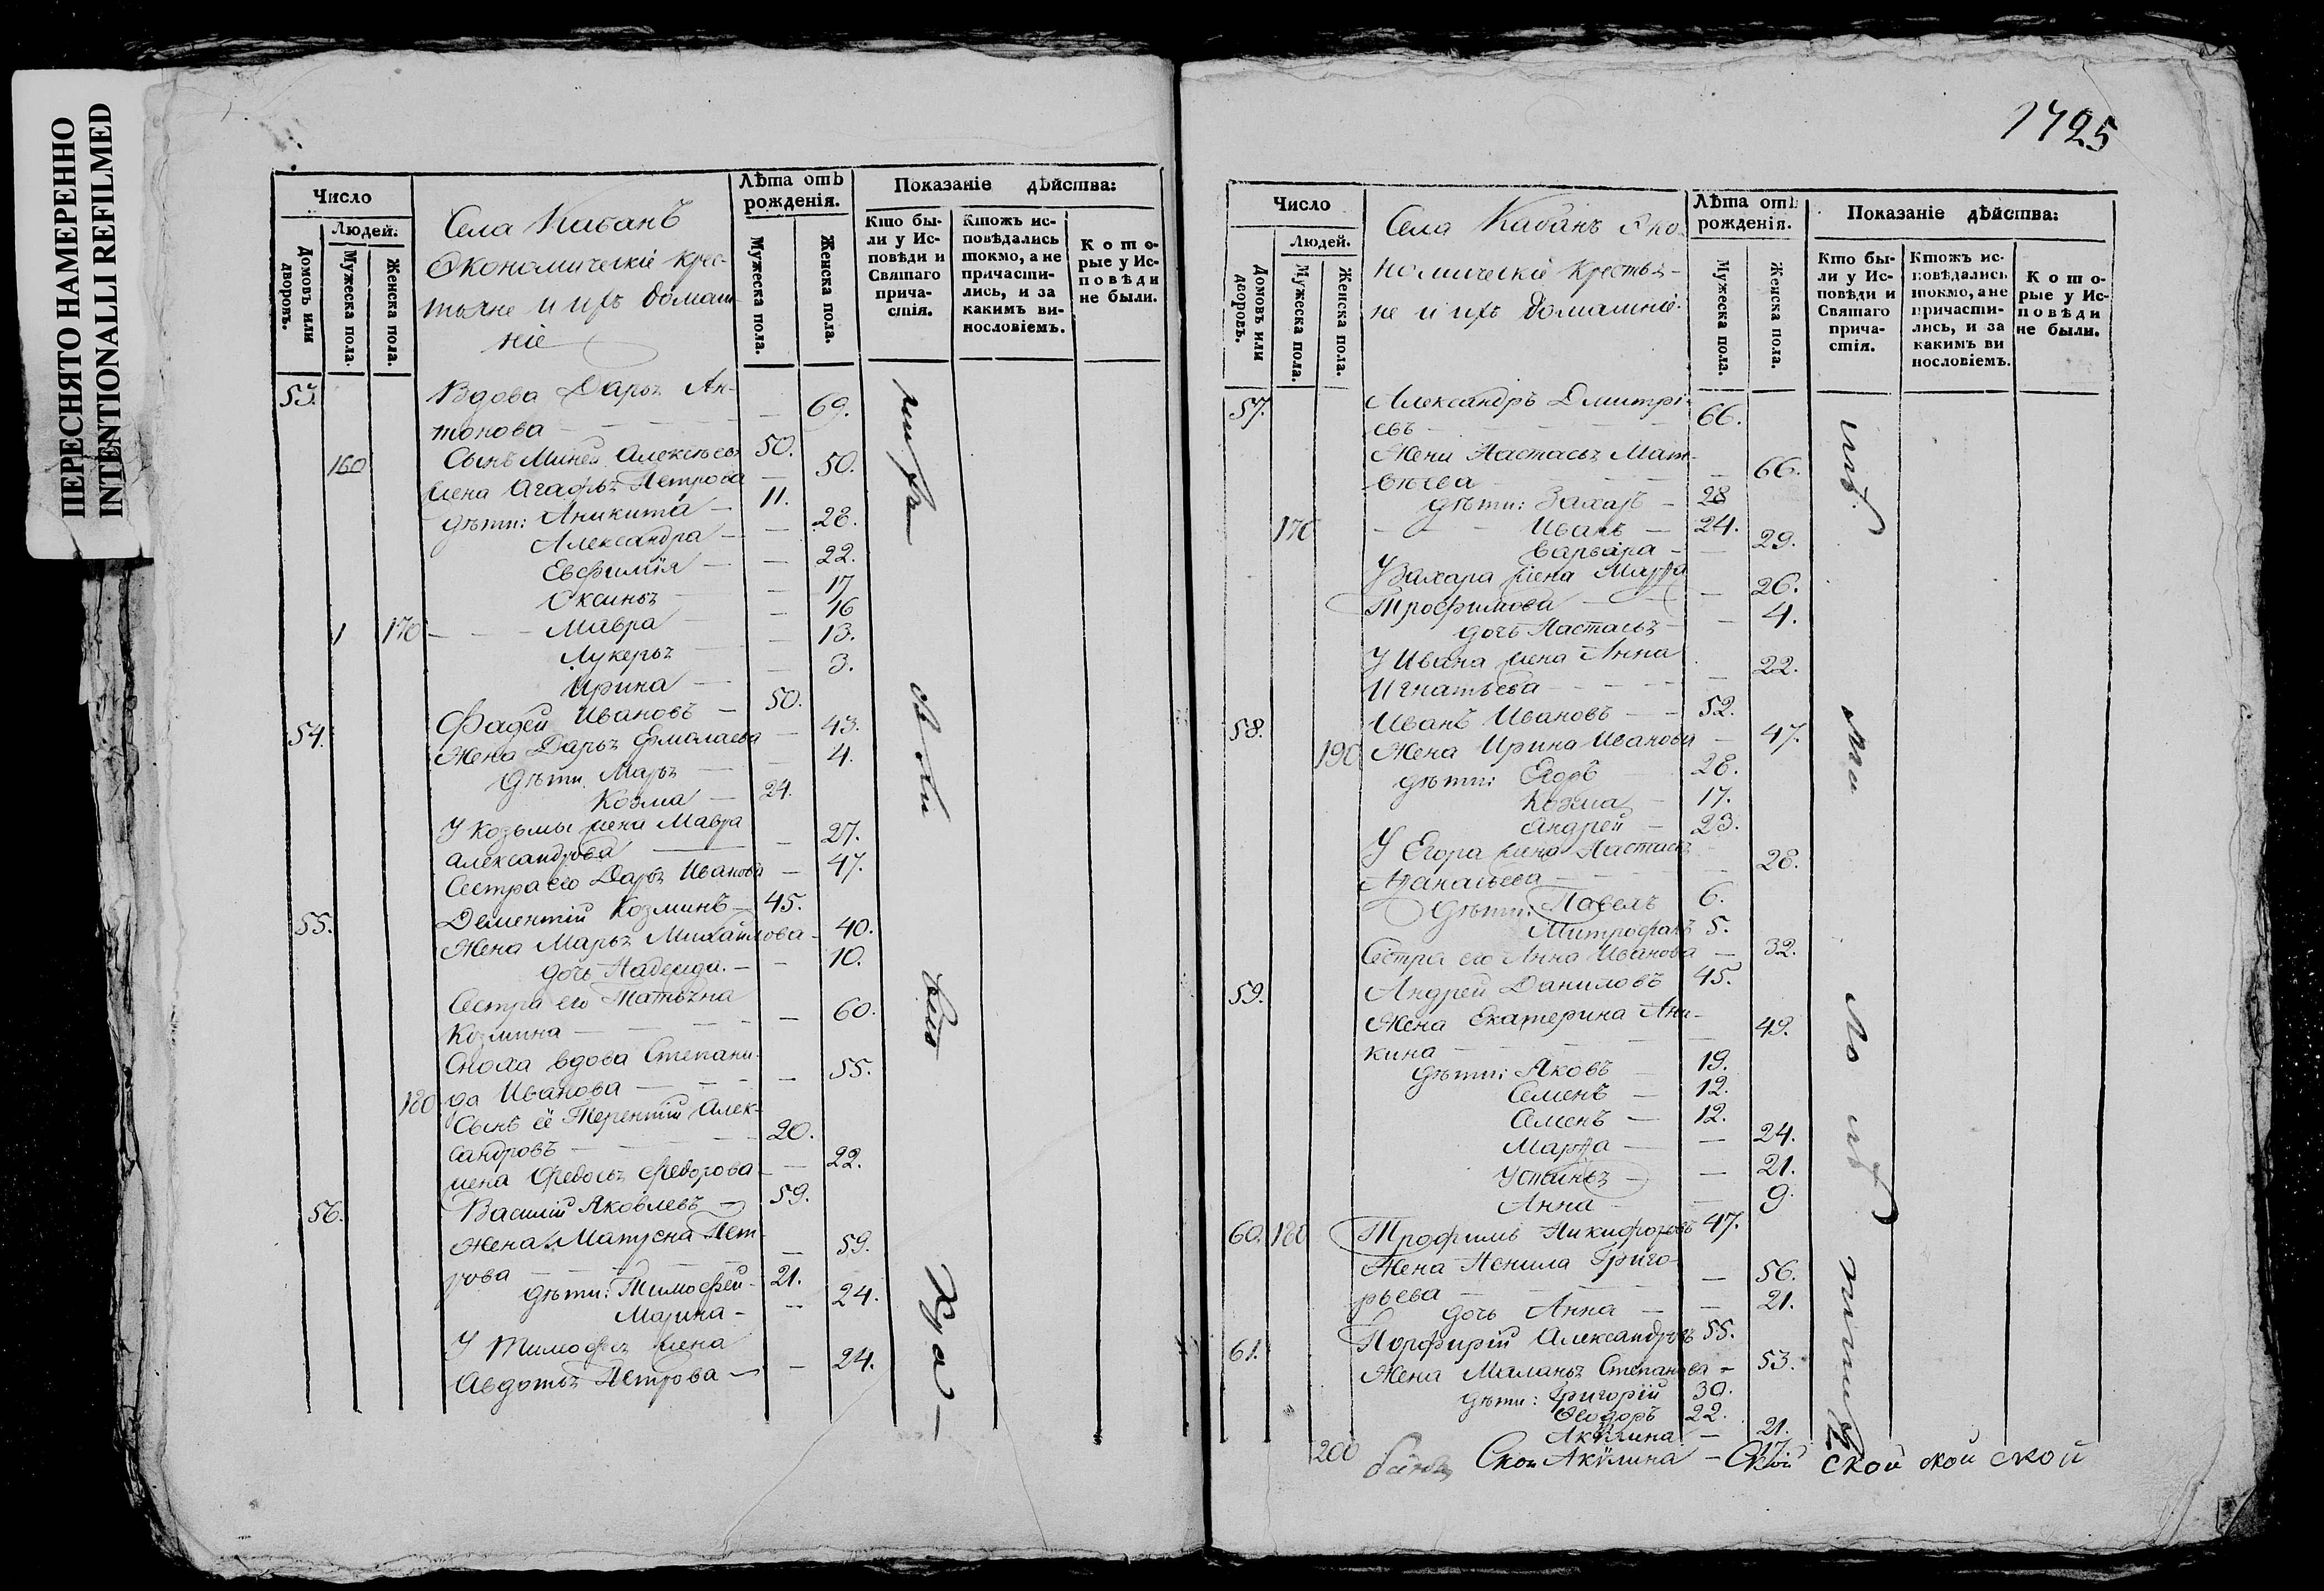 ПЕРЕСНЯТО НАМЕРЕННО
INTENTIONALLI REFILMED
Число
Людей.
Домовъ или дворовъ.
Мужеска пола.
Женска пола.
Села Кабанъ
Экономическіе крес-
тьяне и ихъ домаш-
ніе
Лѣта отъ рожденія.
Мужеска пола.
Женска пола.
Показаніе дѣйства:
Кто бы-
ли у Ис-
повѣди и
Святаго
прича-
стія.
Ктожъ ис-
повѣдались
токмо, а не
причасти-
лись, и за
какимъ ви-
нословіемъ.
Кото-
рые у Ис-
повѣди
не были.
53. Вдова Дарья Ан-
тонова — 69.
160 Сынъ Миней Алексѣевъ 50.
жена Агафья Петрова — 50.
дѣти: Аникита — 11.
Александра — 28.
Евфимія — 22.
Оксинья — 17
1 170 Мавра — 16
Лукерья — 13.
Ирина — 3.
54. Фадей Ивановъ — 50.
Жена Дарья Ермолаева — 43.
дѣти Марья — 4.
Козма — 24.
У Козьмы жена Мавра
Александрова — 27.
Сестра его Дарья Иванова — 47.
55. Дементій Козминъ — 45.
Жена Марья Михайлова — 40.
дочь Надежда. — 10.
Сестра его Татьяна
Козмина — 60.
Сноха вдова Степани-
180 да Иванова — 55.
Сынъ её Терентій Алек-
сандровъ — 20.
жена Федосья Федорова — 22.
56. Василій Яковлевъ — 59.
Жена Матрена Пет-
рова — 59.
дѣти: Тимофей — 21.
Марина — 24.
У Тимофея жена
Авдотья Петрова — 24.
1725
Число
Людей.
Домовъ или дворовъ.
Мужеска пола.
Женска пола.
Села Кабанъ Эко-
номическіе крестья-
не и ихъ домашніе.
Лѣта отъ рожденія.
Мужеска пола.
Женска пола.
Показаніе дѣйства:
Кто бы-
ли у Ис-
повѣди и
Святаго
прича-
стія.
Ктожъ ис-
повѣдались
токмо, а не
причасти-
лись, и за
какимъ ви
нословіемъ.
Кото-
рые у Ис-
повѣди
не были.
57. Александръ Дмитрі-
евъ — 66.
Жена Настасья Мат-
вѣева — 66.
дѣти: Захаръ — 28
170 Иванъ — 24.
Варвара — 29.
У Захара жена Марфа
Трофимова — 26.
дочь Настасья — 4.
У Ивана жена Анна
Игнатьева — 22.
58. Иванъ Ивановъ — 52.
190 Жена Ирина Иванова — 47.
дѣти: Егоръ 28.
Козма — 17.
Андрей — 23.
У Егора жена Настасья
Афанасьева — 28.
дѣти: Павелъ 6.
Митрофанъ 5.
Сестра его Анна Иванова — 32.
59. Андрей Даниловъ 45.
Жена Екатерина Ани-
кина — 49.
дѣти: Яковъ — 19.
Семенъ — 12.
Семенъ — 12.
Марфа — 24.
Устинья — 21.
Анна — 9.
60. 180 Трофимъ Никифоровъ 47.
Жена Ненила Григо-
рьева — 56.
дочь Анна — 21.
61. Порфирій Александровъ 55.
Жена Маланья Степанова — 53.
дѣти: Григорій 30.
Ѳеодоръ 22.
Акулина — 21.
200 Акулина — 17.
ской ской ской